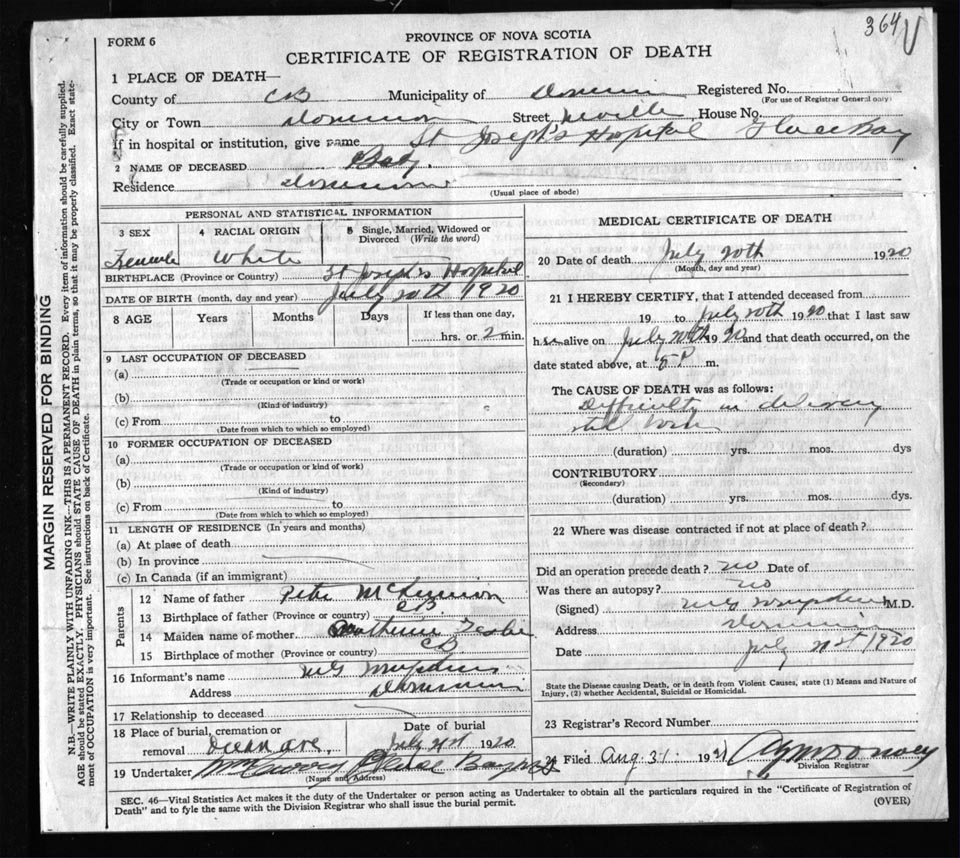 364
FORM 6
PROVINCE OF NOVA SCOTIA
CERTIFICATE OF REGISTRATION OF DEATH
1 PLACE OF DEATH—
County of CB Municipality of Dominion Registered No.
(For use of Registrar General only)
City or Town Dominion Street, Neville House No.
If in hospital or institution, give name St Joseph's Hospital Glace Bay
2 NAME OF DECEASED Baby.
Residence Dominion
(Usual place of abode)
PERSONAL AND STATISTICAL INFORMATION
3 SEX 4 RACIAL ORIGIN 5 Single, Married, Widowed or Divorced (Write the word)
Female White
BIRTHPLACE (Province or Country) St Joseph's Hospital
DATE OF BIRTH (month, day and year) July 20th 1920
8 AGE Years Months Days If less than one day,
hrs. or 2 min.
9 LAST OCCUPATION OF DECEASED
(a)
(Trade or occupation or kind or work)
(b)
(Kind of industry)
(c) From to
(Date from which to which so employed)
10 FORMER OCCUPATION OF DECEASED
(a)
(Trade or occupation or kind of work)
(b)
(Kind of industry)
(c) From to
(Date from which to which so employed)
11 LENGTH OF RESIDENCE (In years and months)
(a) At place of death
(b) In province
(c) In Canada (if an immigrant)
Parents
12 Name of father Peter McKinnon
13 Birthplace of father (Province or country) CB
14 Maiden name of mother Catherine
15 Birthplace of mother (Province or country) CB
16 Informant's name
Address Dominion
17 Relationship to deceased
18 Place of burial, cremation or Date of burial
removal Ocean ave, July 21st 1920
19 Undertaker
(Name and Address)
MEDICAL CERTIFICATE OF DEATH
20 Date of death July 20th 1920
(Month, day and year)
21 I HEREBY CERTIFY, that I attended deceased from
19 to July 20th 1920 that I last saw
h alive on July 20th 1920 and that death occurred, on the
date stated above, at P m.
The CAUSE OF DEATH was as follows:
Difficulty in delivery
still born
(duration) yrs. mos. dys
CONTRIBUTORY
(Secondary)
(duration) yrs. mos. dys.
22 Where was disease contracted if not at place of death?
Did an operation precede death? no Date of
Was there an autopsy? no
(Signed) M.D.
Address Dominion
Date July 21st 1920
State the Disease causing Death, or in death from Violent Causes, state (1) Means and Nature of
Injury, (2) whether Accidental, Suicidal or Homicidal.
23 Registrar's Record Number
24 Filed Aug. 31 19
Division Registrar
SEC. 46—Vital Statistics Act makes it the duty of the Undertaker or person acting as Undertaker to obtain all the particulars required in the "Certificate of Registration of
Death" and to fyle the same with the Division Registrar who shall issue the burial permit.
(OVER)
MARGIN RESERVED FOR BINDING
N.B.—WRITE PLAINLY WITH UNFADING INK—THIS IS A PERMANENT RECORD. Every item of information should be carefully supplied.
AGE should be stated EXACTLY. PHYSICIANS should STATE CAUSE OF DEATH in plain terms, so that it may be properly classified. Exact state-
ment of OCCUPATION is very important. See instructions on back of Certificate.